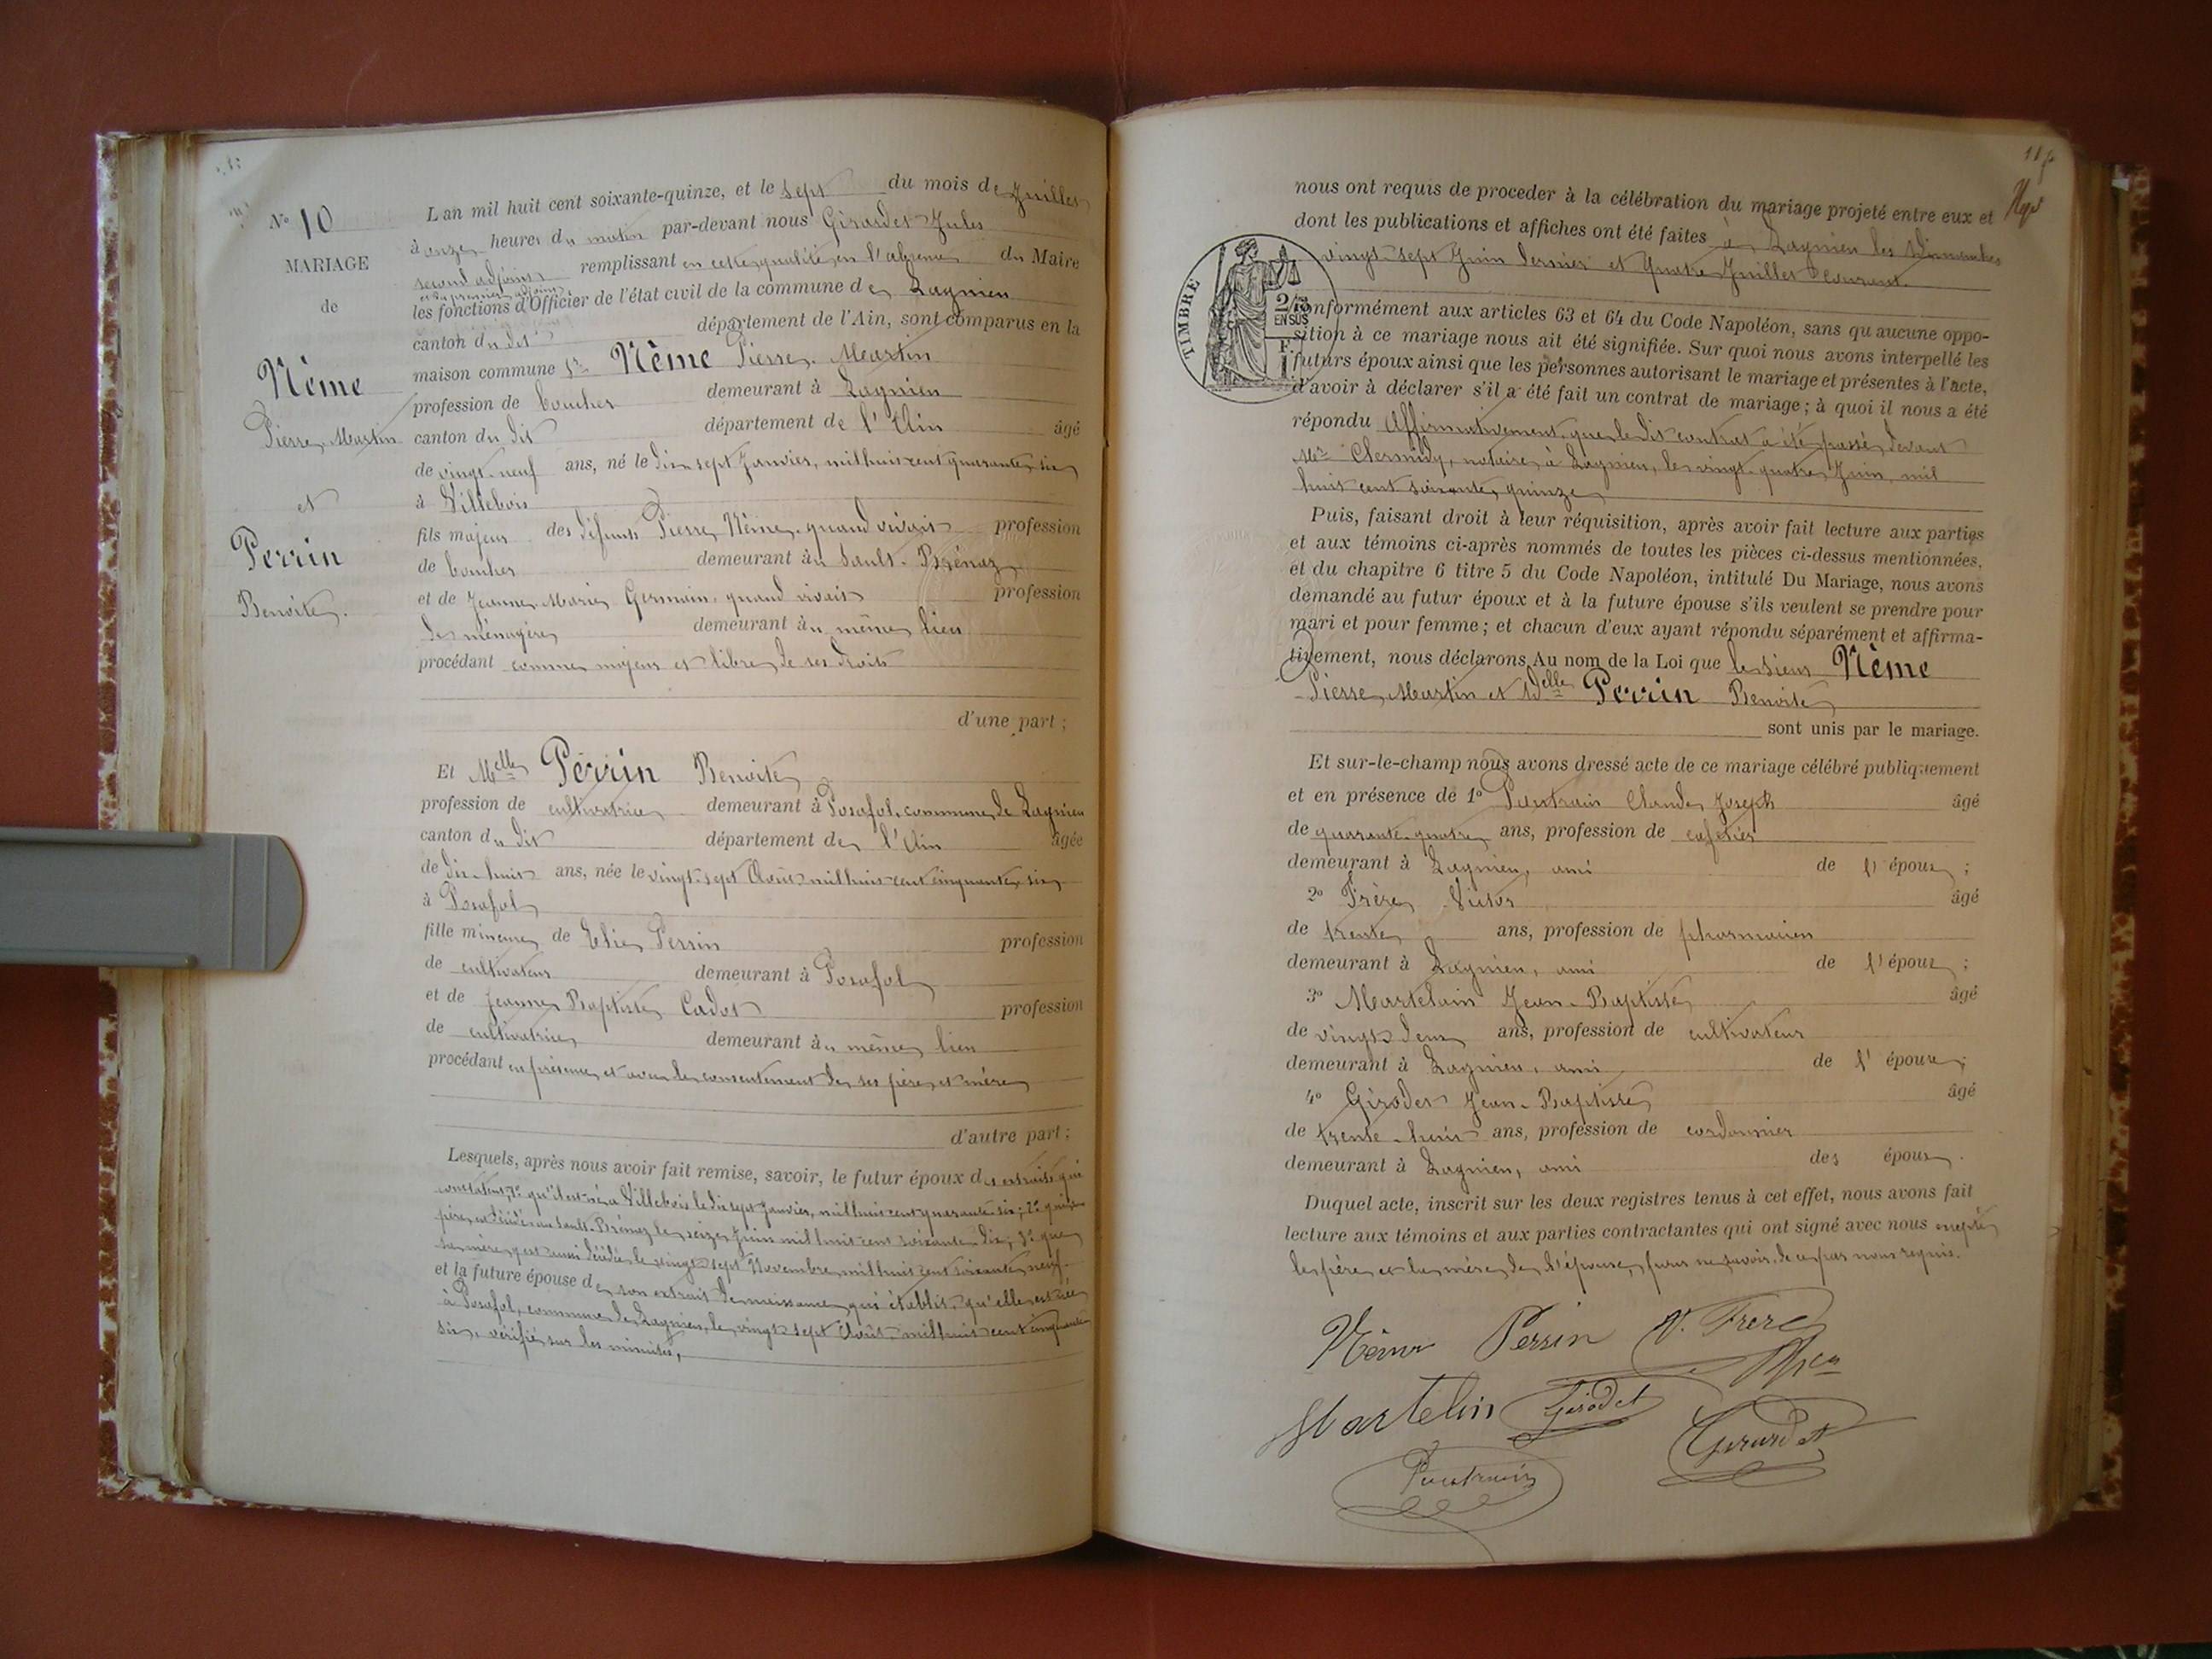 N° 10
MARIAGE
de
Nême
Pierre Martin
et
Perrin
Benoite.
L'an mil huit cent soixante-quinze, et le sept du mois de Juillet
à onze heures du matin par-devant nous Girardet Jules
second adjoint remplissant en cette qualité, en l'absence du Maire
et du premier adjoint,
les fonctions d'Officier de l'état civil de la commune de Lagnieu
canton du dit département de l'Ain, sont comparus en la
maison commune Sr Nême Pierre Martin
profession de boucher demeurant à Lagnieu
canton du dit département de l'Ain âgé
de vingt-neuf ans, né le dix sept Janvier, mil huit cent quarante six
à Villebois
fils majeur des défunts Pierre Nême, quand vivait profession
de boucher demeurant au Sault-Brénaz
et de Jeanne Marie Germain, quand vivait profession
de ménagère demeurant au même lieu
procédant comme majeur et libre de ses droits
d'une part ;
Et Melle Perrin Benoite
profession de cultivatrice demeurant à Posafol, commune de Lagnieu
canton du dit département de l'Ain âgée
de dix-huit ans, née le vingt-sept Août mil huit cent cinquante six
à Posafol
fille mineure de Elie Perrin profession
de cultivateur demeurant à Posafol
et de Jeanne Baptiste Cadot profession
de cultivatrice demeurant au même lieu
procédant en présence et avec le consentement de ses père et mère
d'autre part ;
Lesquels, après nous avoir fait remise, savoir, le futur époux des extraits qui
constatent, 1° qu'il est né à Villebois le dix sept Janvier, mil huit cent quarante six ; 2° que son
père, est décédé au Sault-Brenaz le seize Juin mil huit cent soixante dix ; 3° que
sa mère y est aussi décédée le vingt-sept Novembre mil huit cent soixante neuf
et la future épouse de son extrait de naissance qui établit, qu'elle est née
à Posafol, commune de Lagnieu, le vingt-sept Août mil huit cent cinquante
six, vérifié sur les minutes,
nous ont requis de proceder à la célébration du mariage projeté entre eux et
dont les publications et affiches ont été faites à Lagnieu les Dimanches
vingt-sept Juin dernier et Quatre Juillet courant.
TIMBRE
2/10
EN SUS
F.
Conformément aux articles 63 et 64 du Code Napoléon, sans qu'aucune oppo-
sition à ce mariage nous ait été signifiée. Sur quoi nous avons interpellé les
futurs époux ainsi que les personnes autorisant le mariage et présentes à l'acte,
d'avoir à déclarer s'il a été fait un contrat de mariage ; à quoi il nous a été
répondu Affirmativement, que le dit contrat a été passé devant
Me Clermidy, notaire à Lagnieu, le vingt-quatre Juin mil
huit cent soixante quinze
Puis, faisant droit à leur réquisition, après avoir fait lecture aux parties
et aux témoins ci-après nommés de toutes les pièces ci-dessus mentionnées,
et du chapitre 6 titre 5 du Code Napoléon, intitulé Du Mariage, nous avons
demandé au futur époux et à la future épouse s'ils veulent se prendre pour
mari et pour femme ; et chacun d'eux ayant répondu séparément et affirma-
tivement, nous déclarons Au nom de la Loi que le sieur Nême
Pierre Martin et Delle Perrin Benoite
sont unis par le mariage.
Et sur-le-champ nous avons dressé acte de ce mariage célébré publiquement
et en présence de 1° Pautrain Claude Joseph âgé
de quarante-quatre ans, profession de cafetier
demeurant à Lagnieu, ami de l'époux ;
2° Frère Victor âgé
de trente ans, profession de pharmacien
demeurant à Lagnieu, ami de l'époux ;
3° Martelain Jean-Baptiste âgé
de vingt-deux ans, profession de cultivateur
demeurant à Lagnieu, ami de l'épouse ;
4° Girodet Jean-Baptiste âgé
de trente-huit ans, profession de cordonnier
demeurant à Lagnieu, ami des époux.
Duquel acte, inscrit sur les deux registres tenus à cet effet, nous avons fait
lecture aux témoins et aux parties contractantes qui ont signé avec nous excepté
le père et la mère de l'épouse, pour ne savoir, de ce par nous requis.
Nême Perrin V. Frere
Phcn
Martelin Girodet
Girardet
Pautrain